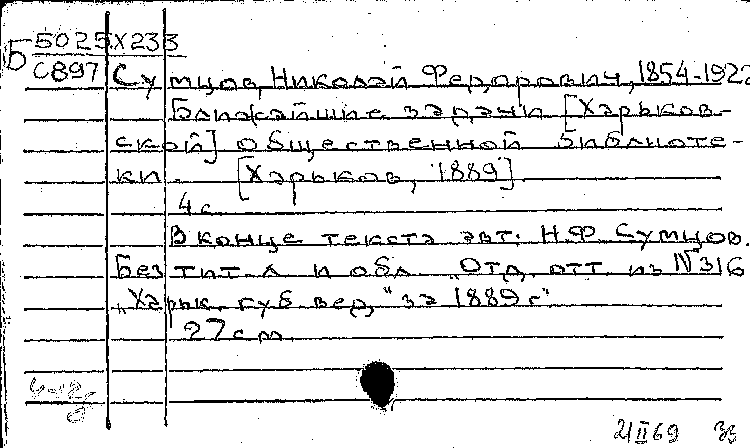 Б 5025Х233
С897 Сумцов, Николай Федорович, 1854-1922
Ближайшие задачи [Харьков-
ской] общественной библиоте-
ки. [Харьков, 1889].
4 с.
В конце текста авт: Н.Ф. Сумцов.
Без тит. л и обл. Отд. отт. из №316
„Харьк. губ вед." за 1889 г
27 см
21 II 69